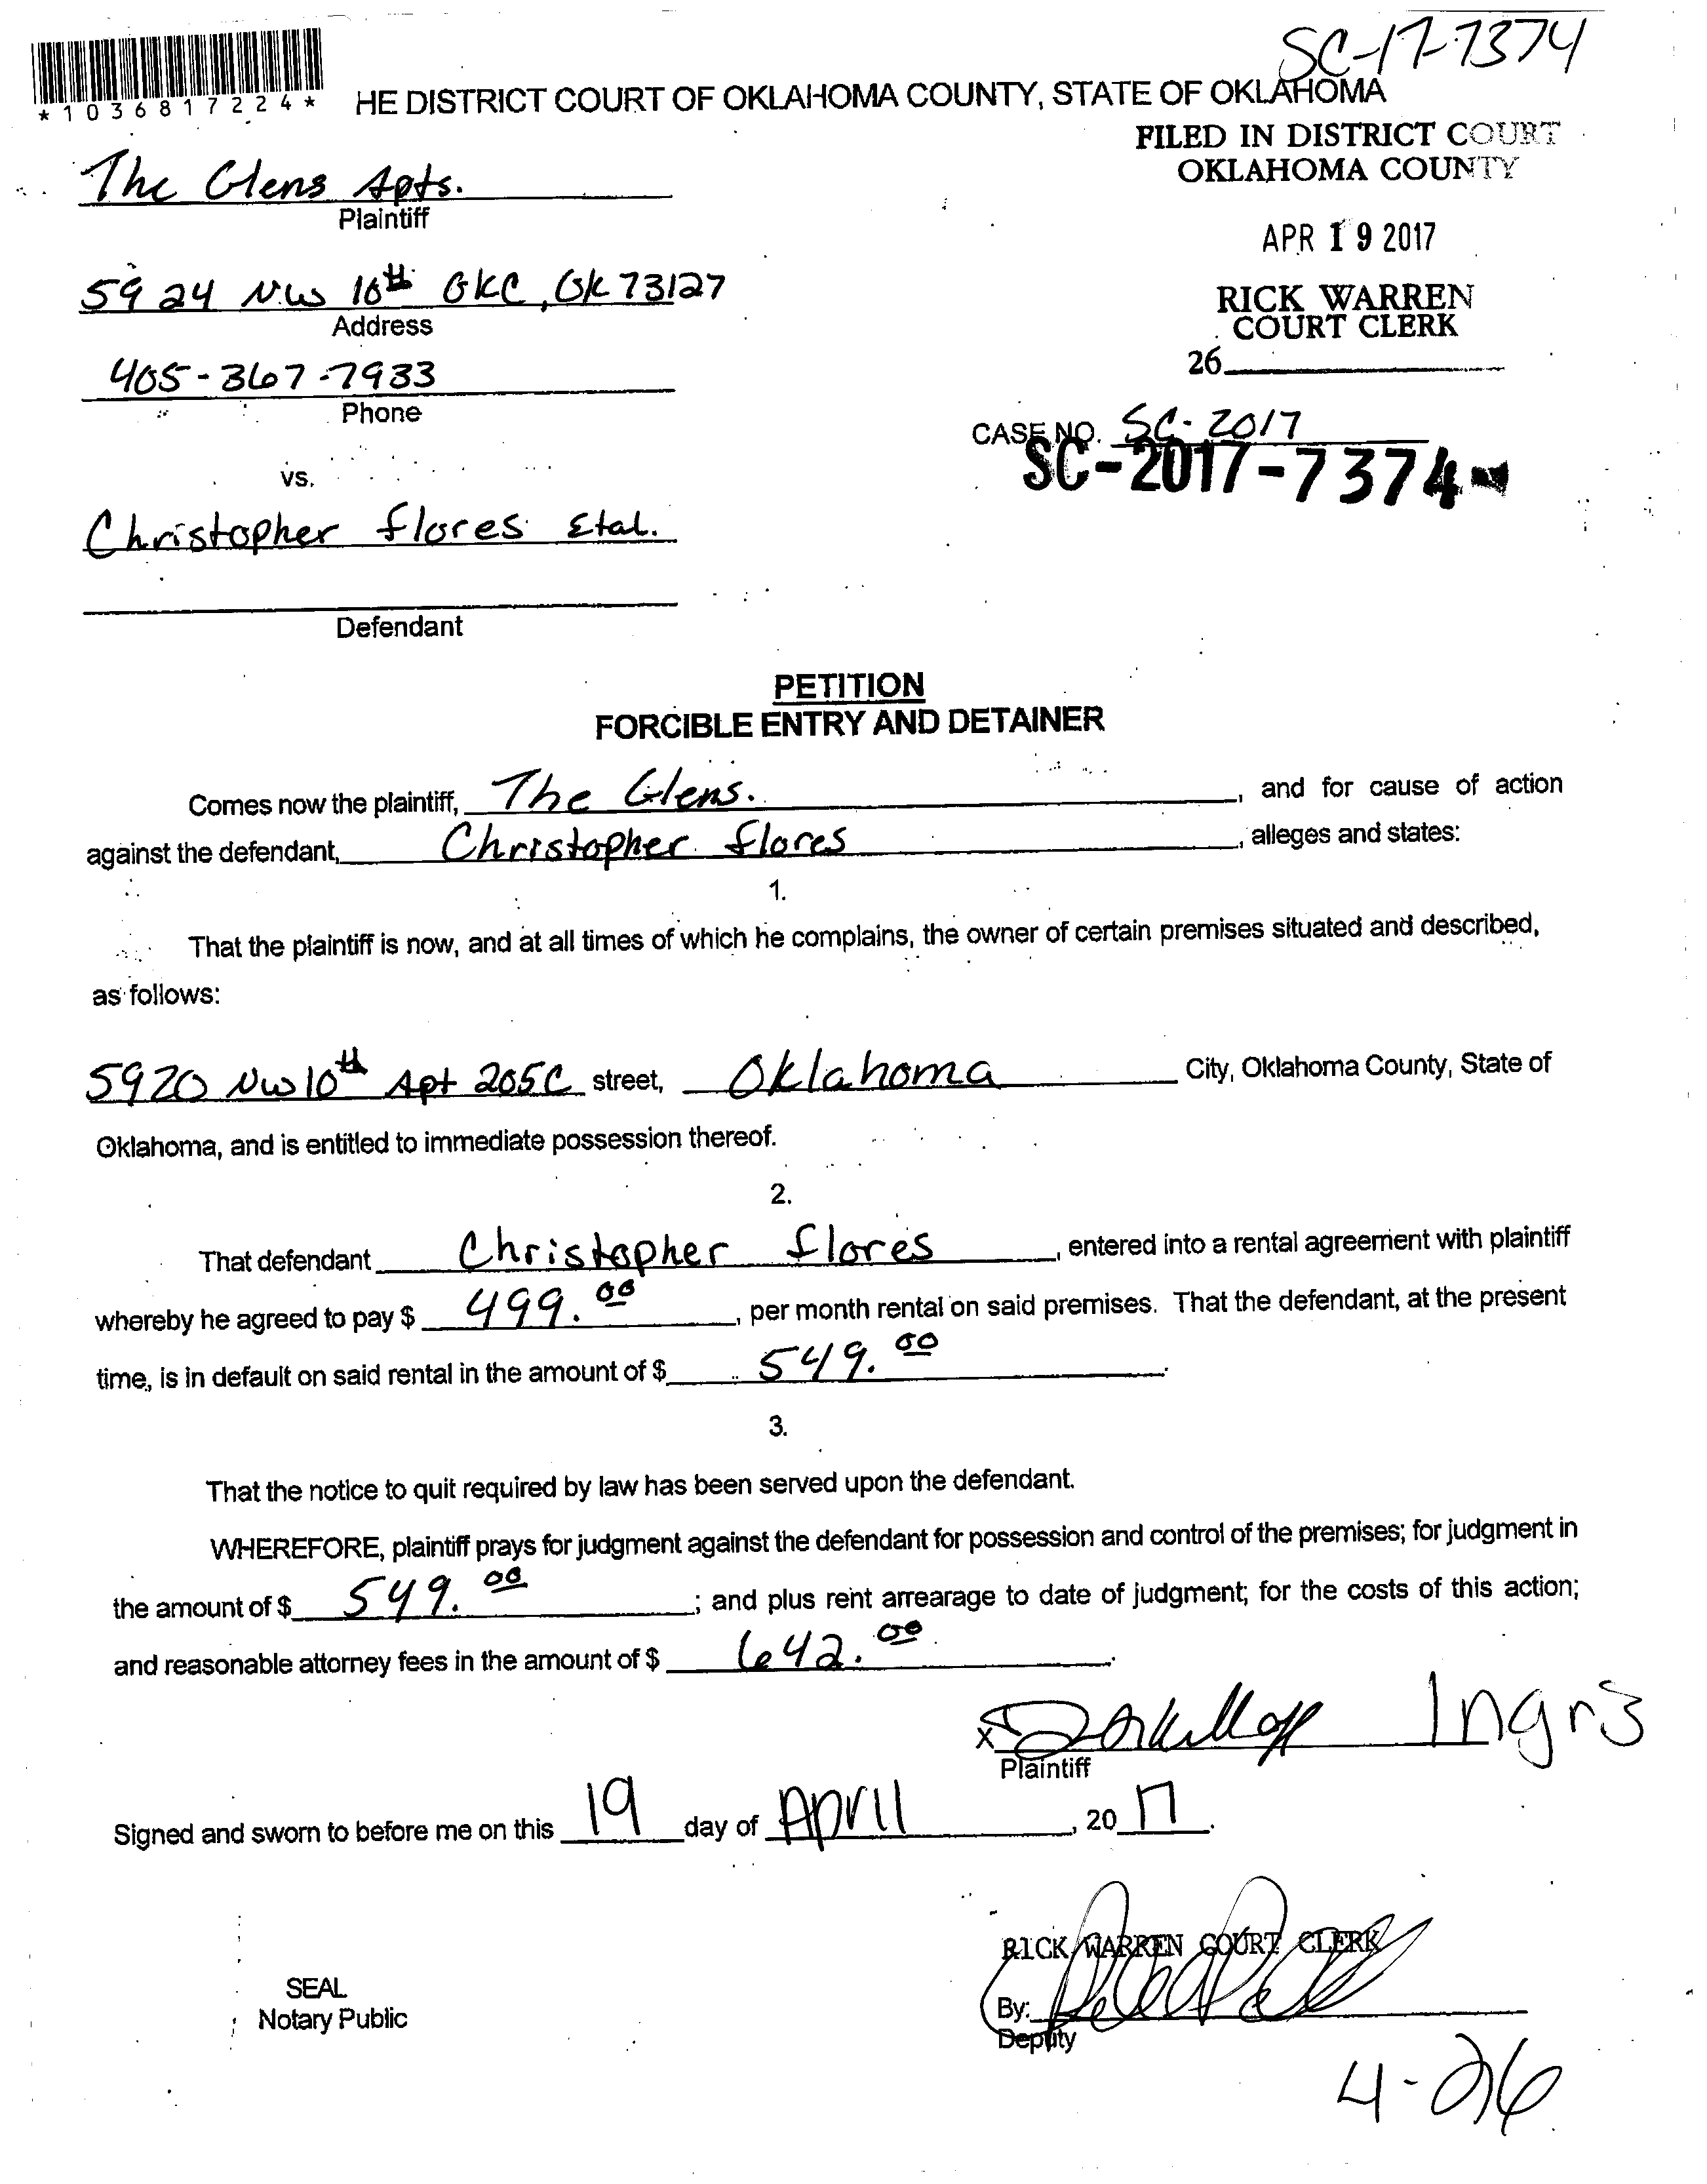 SC-17-7374
*1036817224*
HE DISTRICT COURT OF OKLAHOMA COUNTY, STATE OF OKLAHOMA
FILED IN DISTRICT COURT
OKLAHOMA COUNTY
The Glens Apts.
Plaintiff
APR 19 2017
5924 NW 10th OKC, OK 73127
Address
RICK WARREN
COURT CLERK
26
405-367-7933
Phone
CASE NO. SC-2017
SC-2017-7374
vs.
Christopher flores Etal.
Defendant
PETITION
FORCIBLE ENTRY AND DETAINER
Comes now the plaintiff, The Glens. , and for cause of action
against the defendant, Christopher flores , alleges and states:
1.
That the plaintiff is now, and at all times of which he complains, the owner of certain premises situated and described,
as follows:
5920 NW 10th Apt 205C street, Oklahoma City, Oklahoma County, State of
Oklahoma, and is entitled to immediate possession thereof.
2.
That defendant Christopher flores , entered into a rental agreement with plaintiff
whereby he agreed to pay $ 499.00 , per month rental on said premises. That the defendant, at the present
time, is in default on said rental in the amount of $ 549.00 .
3.
That the notice to quit required by law has been served upon the defendant.
WHEREFORE, plaintiff prays for judgment against the defendant for possession and control of the premises; for judgment in
the amount of $ 549.00 ; and plus rent arrearage to date of judgment; for the costs of this action;
and reasonable attorney fees in the amount of $ 642.00 .
X
Plaintiff
Signed and sworn to before me on this 19 day of April , 20 17 .
RICK WARREN COURT CLERK
SEAL
Notary Public
By:
Deputy
4-26